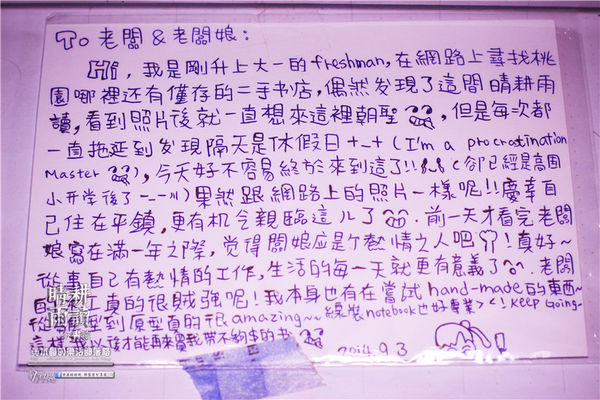 To 老闆 & 老闆娘：
Hi, 我是剛升上大一的freshman, 在網路上尋找桃
園哪裡还有僅存的二手书店, 偶然发現了這間晴耕雨
讀, 看到照片後就一直想來這裡朝聖, 但是每次都
一直拖延到发現隔天是休假日 +_+ (I'm a procrastination
Master), 今天好不容易終於來到這了!! (卻已經是高國
小开学後了 -_-|||) 果然跟網路上的照片一樣呢!! 慶幸自
己住在平鎮, 更有机会親臨這儿了. 前一天才看完老闆
娘寫在滿一年之際, 觉得闆娘应是个熱情之人吧! 真好~
從事自己有熱情的工作, 生活的每一天就更有意義了. 老闆
真的很賊強呢! 我本身也有在嘗試hand-made的東西~
型到原型真的很amazing~~ 線裝notebook也好專業 >< ! Keep Going~
這樣我以後才能再來買我帶不夠的书
2014.9.3
晴耕雨讀